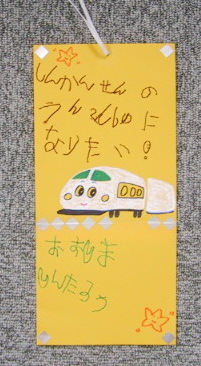 しんかんせんの
うんてんしゅに
なりたい!
おおしま
しんたろう